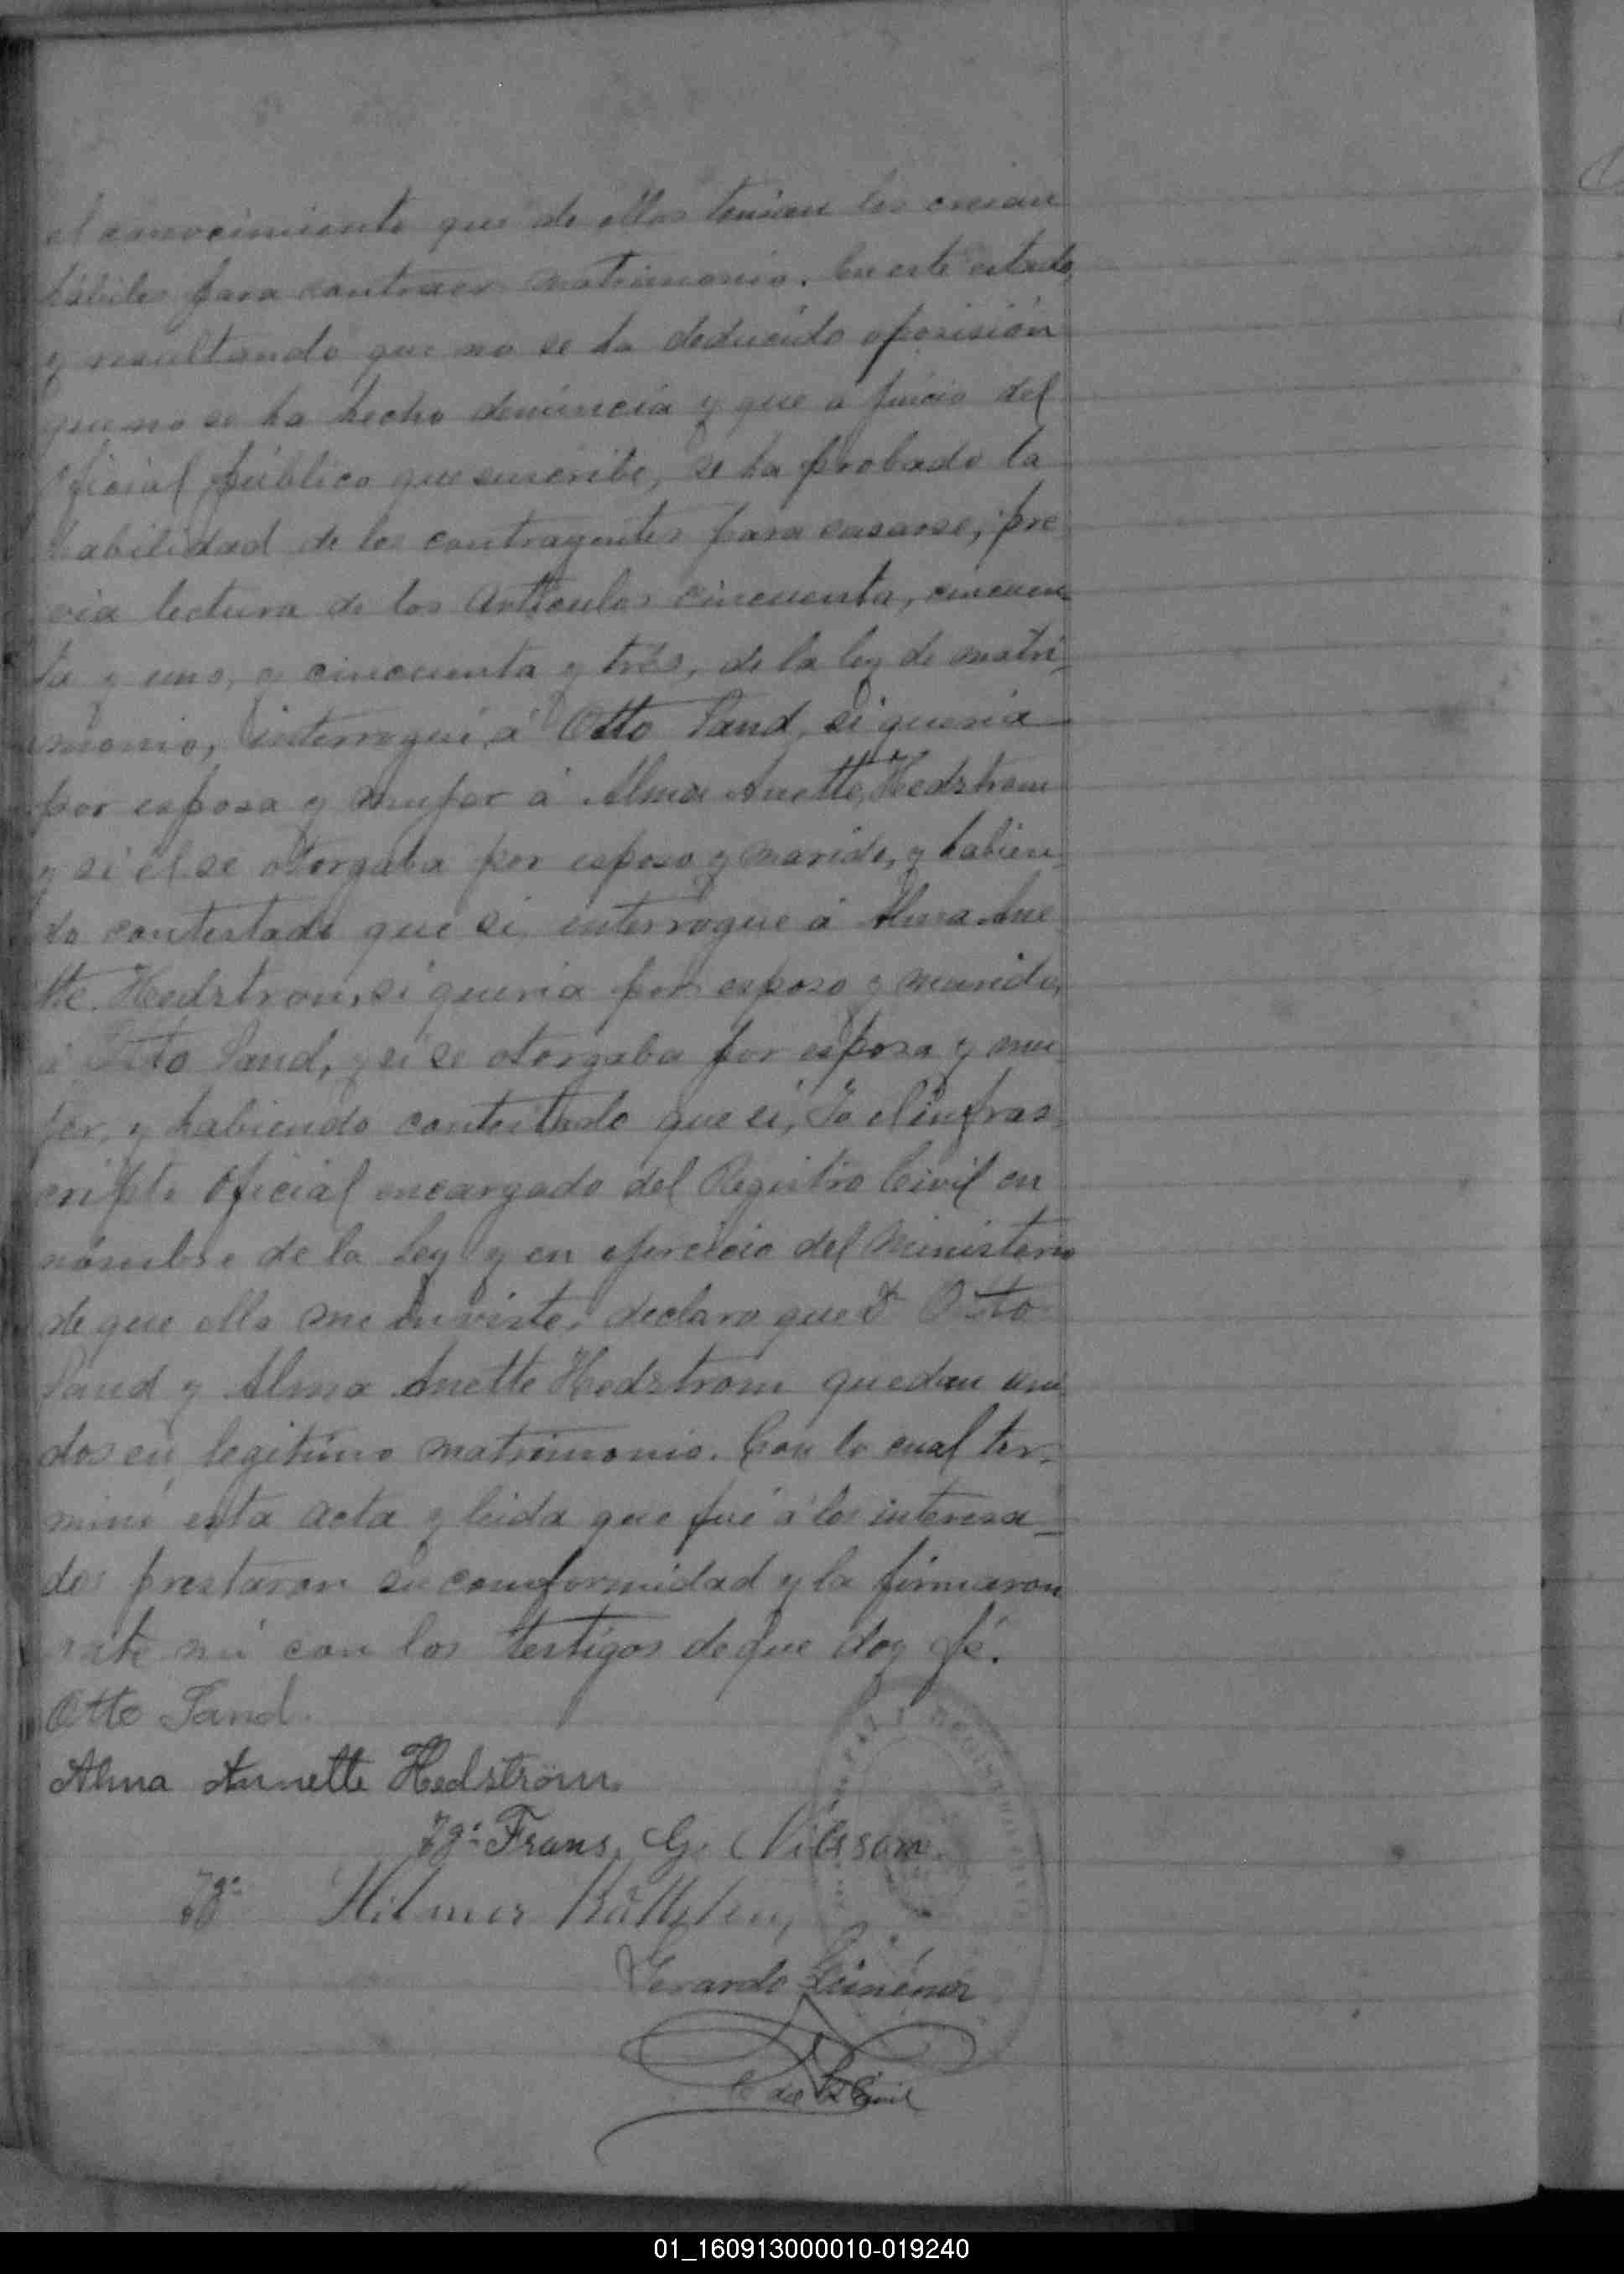 el conocimiento que de ellos tenian los creian
hábiles para contraer matrimonio. En este estado,
y resultando que no se ha deducido oposisión
que no se ha hecho denúncia y que a juicio del
oficial público que suscribe, se ha probado la
habilidad de los contrayentes para casarse, pre
via lectura de los Articulos cincuenta, cincuen
ta y uno, y cincuenta y trés, de la ley de matri-
monio, interrogué á Otto Sand, si queria
por esposa y mujer á Alma Anette Hedstrom
y si él se otorgaba por esposo y marido, y habien
do contestado que si, interrogue á Alma Ane
tte Hedstrom, si queria por esposo y marido,
á Otto Sand, y si se otorgaba por esposa y mu
jer, y habiendo contestado que si, Yo el infras-
cripto Oficial encargado del Registro Civil en
nómbre de la Ley y en ejercicio del Ministerio
de que ella me inviste, declaro que Dn Otto
Sand y Alma Anette Hedstrom quedan uni
dos en legitimo matrimonio. Con lo cual ter-
miné esta acta y leida que fué á los interesa-
dos prestaron su conformidad y la firmaron
ante mi con los testigos de que doy fé.
Otto Sand.
Alma Annette Hedström.
Tgo Frans. G. Nilsson.
Tgo Hilmer
Gerardo Giménez
del R Civil
01_160913000010-019240